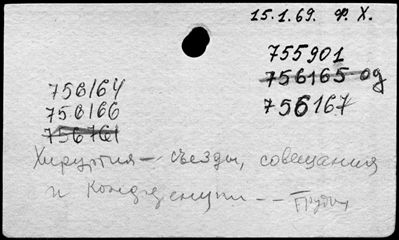 15.1.69. Ф. Х.
755901
756164
756165 од
756166
756167
756761
Хирургия — съезды, совещания
и Конференции — Труды